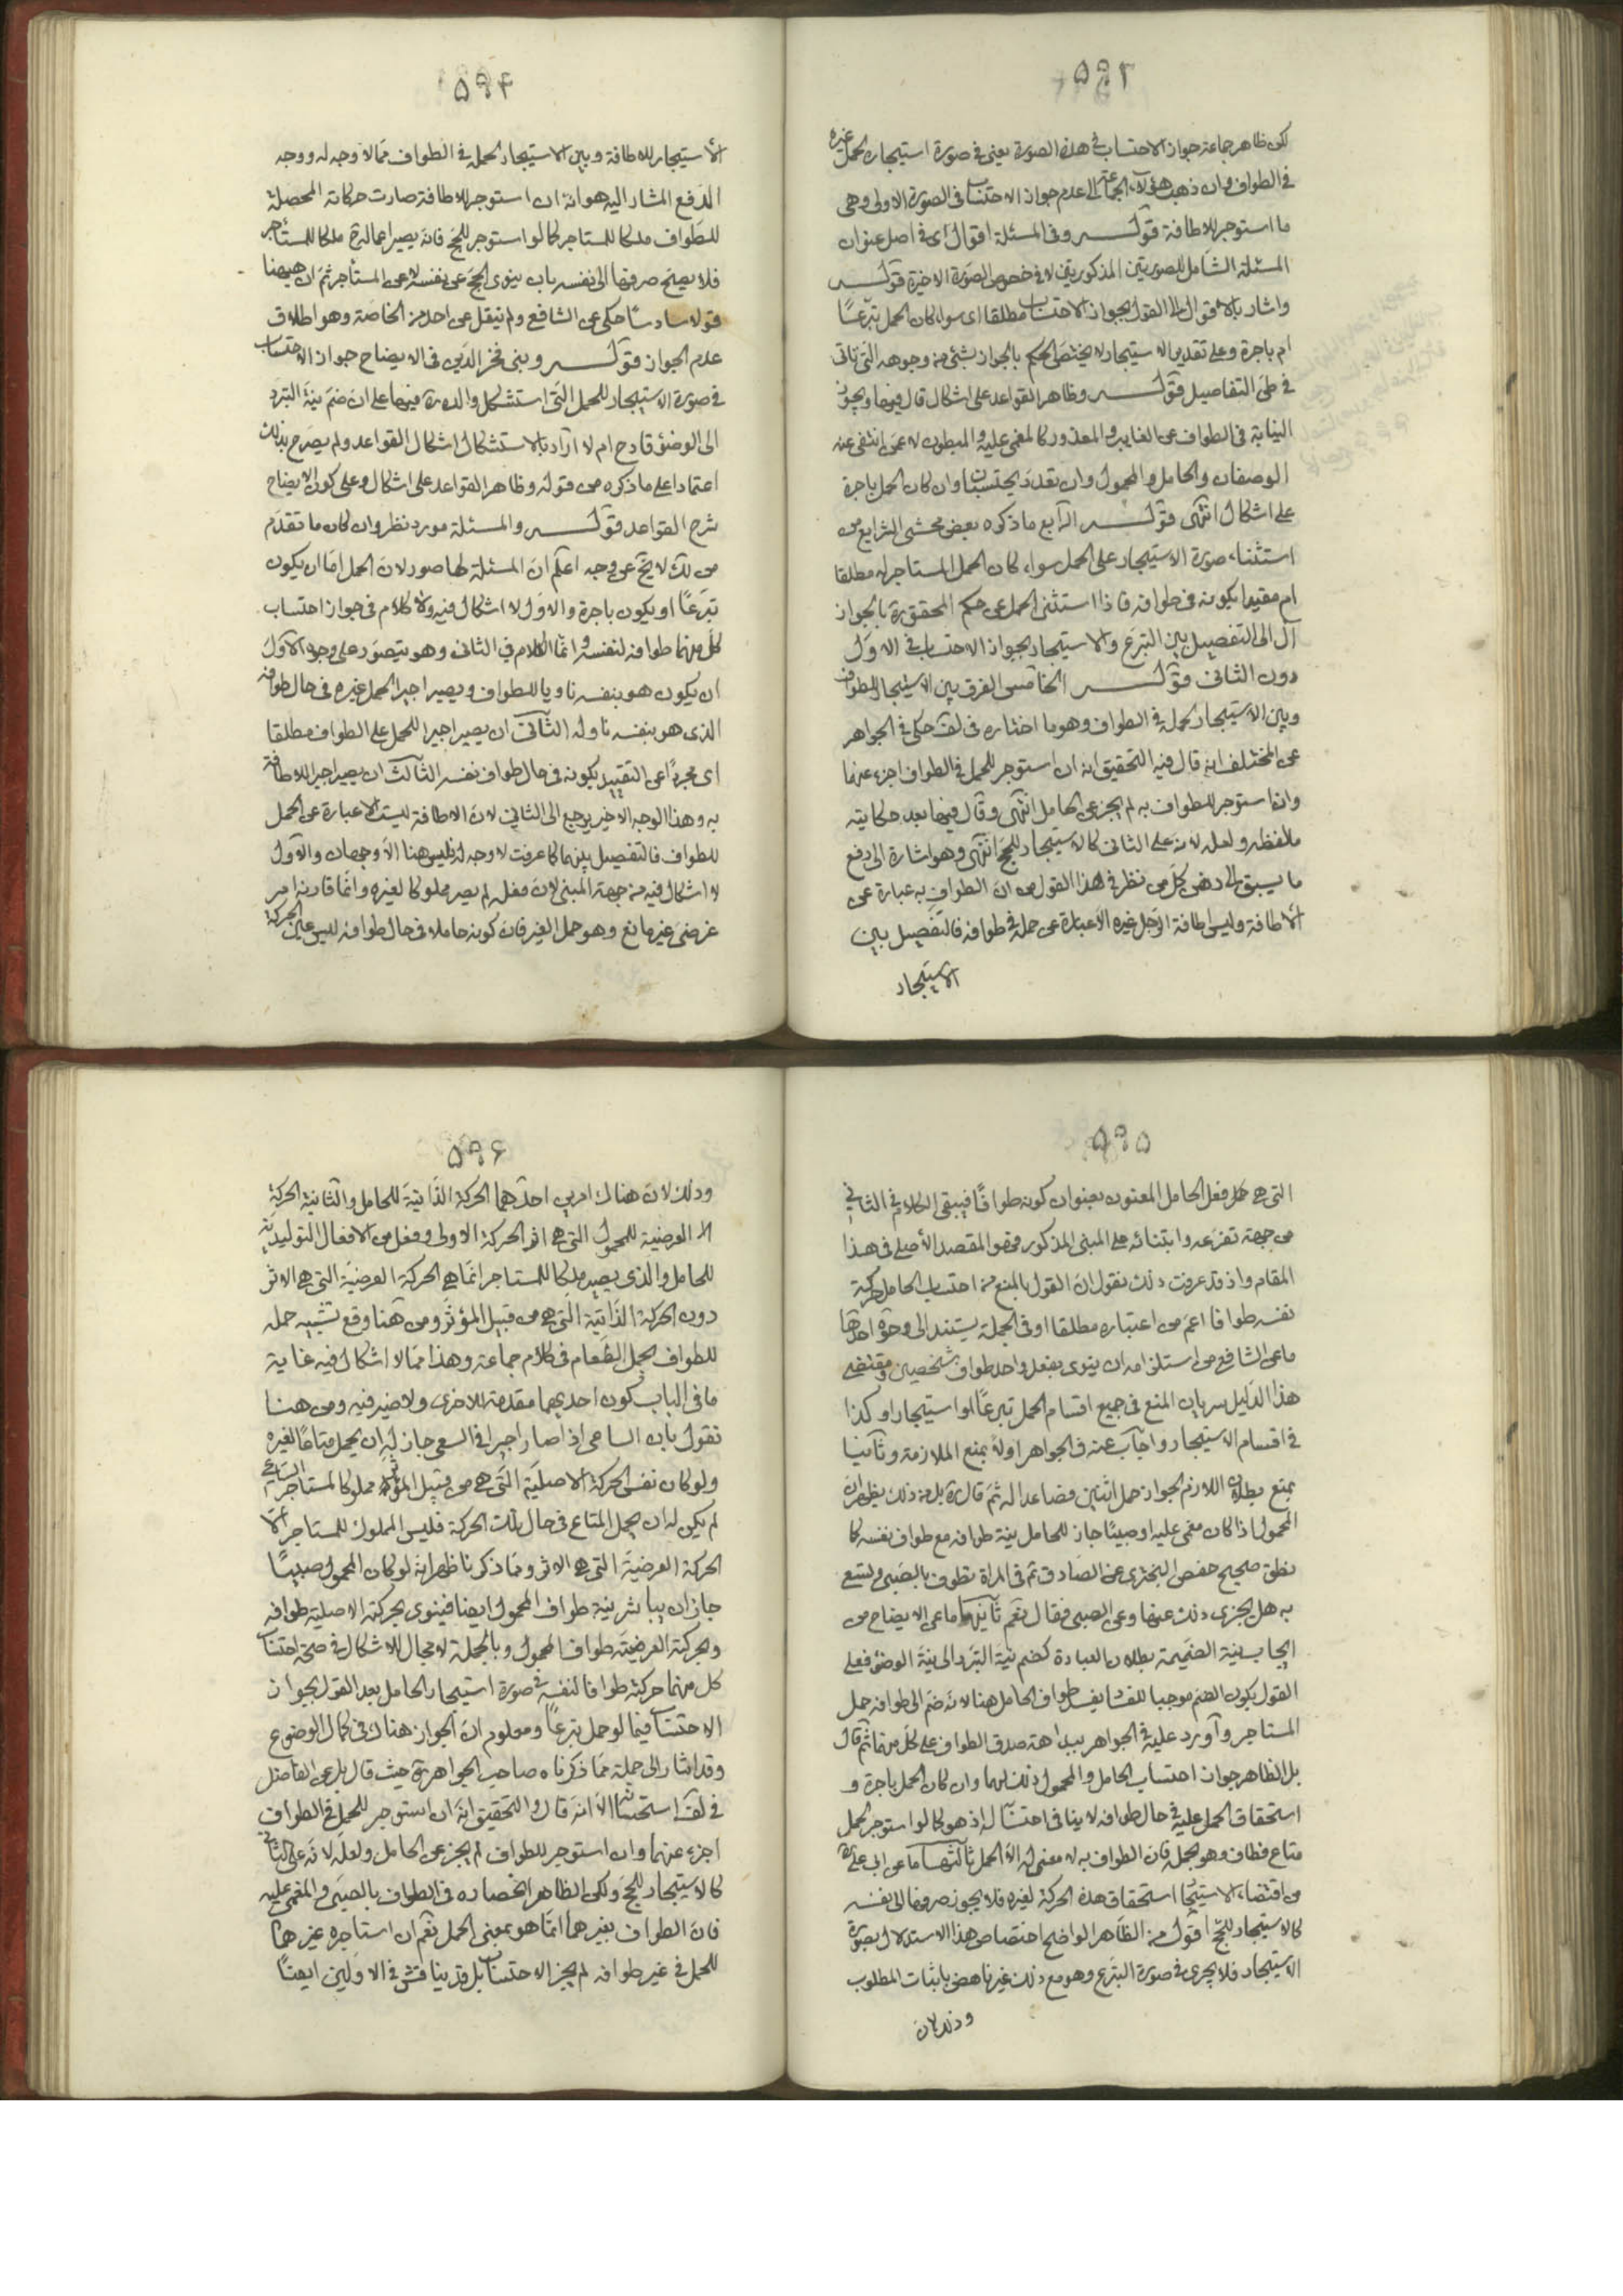 ۵۹۳
لكن ظاهر جماعة جواز الاحتساب في هذه الصورة يعنى في صورة استيجاره لحمل غيره
في الطواف وان ذهب هؤلاء الجماعة الى عدم جواز الاحتساب فى الصورة الاولى وهى
ما استوجر للاطافة قوله وفى المسئلة اقوال اى فى اصل عنوان
المسئلة الشامل للصورتين المذكورتين لا فى خصوص الصورة الاخيرة قوله
واشار بالاقوال الى القول بجواز الاحتساب مطلقا اى سواء كان الحمل تبرعًا
ام باجرة وعلى تقدير الاستيجار لا يختص الحكم بالجواز بشئ من وجوهه التى تاتى
فى طى التفاصيل قوله وظاهر القواعد على اشكال قال فيها ويجوز
النيابة فى الطواف عن الغايب والمعذور كالمغمى عليه والمبطون لا عمن انتفى عنه
الوصفان والحامل والمحمول وان تعدد يحتسبان وان كان الحمل باجرة
على اشكال انتهى قوله الرابع ما ذكره بعض محشى الشرايع من
استثناء صورة الاستيجار على الحمل سواء كان الحمل المستاجر له مطلقا
ام مقيدا بكونه فى طوافه فاذا استثنى الحمل عن حكم المحقق ره بالجواز
آل الى التفصيل بين التبرع والاستيجار بجواز الاحتساب فى الاول
دون الثانى قوله الخامس الفرق بين الاستيجار للطواف
وبين الاستيجار لحمله فى الطواف وهو ما اختاره فى لف حكى فى الجواهر
عن المختلف انه قال فيه التحقيق انه ان استوجر للحمل فى الطواف اجزء عنهما
وان استوجر للطواف به لم يجز عن الحامل انتهى وقال فيها بعد حكايته
ملفظه ولعله لانه على الثانى كالاستيجار للحج انتهى وهو اشارة الى دفع
ما يسبق الى ذهن كل من نظر فى هذا القول من ان الطواف به عبارة عن
الاطافة وليس اطافة الرجل غيره الا عبارة عن حمله فى طوافه فالتفصيل بين
الاستيجار
۵۹۴
الاستيجار للاطافة وبين الاستيجار لحمله فى الطواف مما لا وجه له ووجه
الدفع المشار اليه هو انه ان استوجر للاطافة صارت حركاته المحصلة
للطواف ملكا للمستاجر كما لو استوجر للحج فانه يصير اعماله ملكا للمستأجر
فلا يصح صرفها الى نفسه بان ينوى الحج عن نفسه لا عن المستأجر ثم ان هيهنا
قولا سادسًا حكى عن الشافع ولم ينقل عن احد من الخاصة وهو اطلاق
عدم الجواز قوله وبنى فخر الدين فى الايضاح جواز الاحتساب
فى صورة الاستيجار للحمل التى استشكل والده ره فيها على ان ضم نية التبرد
الى الوضوء قادح ام لا اراد بالاستشكال اشكال القواعد ولم يصرح بذلك
اعتمادا على ما ذكره من قوله وظاهر القواعد على اشكال وعلى كون الايضاح
شرح القواعد قوله والمسئلة مورد نظر وان كان ما تقدم
من لك لا يخ عن وجه اعلم ان المسئلة لها صور لان الحمل اما ان يكون
تبرعًا او يكون باجرة والاول لا اشكال فيه ولا كلام فى جواز احتساب
كل منهما طوافه لنفسه وانما الكلام في الثانى وهو يتصور على وجوه الاول
ان يكون هو بنفسه ناويا للطواف ويصير اجيرا لحمل غيره فى حال طوافه
الذى هو بنفسه ناو له الثانى ان يصير اجيرا للحمل على الطواف مطلقا
اى مجردًا عن التقييد بكونه فى حال طواف نفسه الثالث ان يصير اجيرا للاطافة
به وهذا الوجه الاخير يرجع الى الثانى لان الاطافة ليست الا عبارة عن الحمل
للطواف فالتفصيل بينهما كما عرفت لا وجه له فليس هنا الا وجهان والاول
لا اشكال فيه من جهة المبنى لان فعله لم يصر مملوكا لغيره وانما قارنه امر
عرضى غير مانع وهو حمل الغير فان كونه حاملا فى حال طوافه ليس عين الحركة
۵۹۵
التى هى فعل الحامل المعنون بعنوان كونه طوافًا فيبقى الكلام فى الثانى
من جهة تفرعه وابتنائه على المبنى المذكور فهو المقصد الأصلى فى هذا
المقام واذ قد عرفت ذلك نقول ان القول بالمنع من احتساب الحامل حركة
نفسه طوافا اعم من اعتباره مطلقا او فى الجملة يستند الى وجوه احدها
ما عن الشافع من استلزامه ان ينوى بفعل واحد طواف شخصين ومقتضى
هذا الدليل سريان المنع فى جميع اقسام الحمل تبرعًا او استيجارا وكذا
فى اقسام الاستيجار واجاب عنه فى الجواهر اولا بمنع الملازمة وثانيا
بمنع بطلان اللازم لجواز حمل اثنين فصاعدا له ثم قال ره بل من ذلك يظهر ان
المحمول اذا كان مغمى عليه او صبيًا جاز للحامل نية طوافه مع طواف نفسه كما
نطق صحيح حفص البخترى عن الصادق ع فى المراة تطوف بالصبى وتسعى
به هل يجزى ذلك عنها وعن الصبى فقال نعم ثانيها ما عن الايضاح من
ايجاب نية الضميمة بطلان العبادة كضم نية التبرد الى نية الوضوء فعلى
القول بكون الضم موجبا للفساد يفسد طواف الحامل هنا لانه ضم الى طوافه حمل
المستاجر واورد عليه فى الجواهر ببداهة صدق الطواف على كل منهما ثم قال
بل الظاهر جواز احتساب الحامل والمحمول ذلك لهما وان كان الحمل باجرة و
استحقاق الحمل عليه فى حال طوافه لا ينافى احتسابه له اذ هو كما لو استوجر لحمل
متاع فطاف وهو يحمله فان الطواف به لا معنى له الا الحمل ثالثها ما عن ابى على
من اقتضاء الاستيجار استحقاق هذه الحركة لغيره فلا يجوز صرفها الى نفسه
كالاستيجار للحج اقول من الظاهر الواضح اختصاص هذا الاستدلال بصورة
الاستيجار فلا يجرى فى صورة التبرع وهو مع ذلك غير ناهض باثبات المطلوب
وذلك لان
۵۹۶
وذلك لان هناك امرين احدهما الحركة الذاتية للحامل والثانية الحركة
العرضية للمحمول التى هى اثر الحركة الاولى وفعل من الافعال التوليدية
للحامل والذى يصير ملكا للمستاجر انما هى الحركة العرضية التى هى الاثر
دون الحركة الذاتية التى هى من قبيل المؤثر ومن هنا وقع تشبيه حمله
للطواف بحمل الطعام فى كلام جماعة وهذا مما لا اشكال فيه غاية
ما فى الباب كون احديهما مقدمة للاخرى ولا ضير فيه ومن هنا
نقول بان الساعى اذا صار اجيرا فى السعى جاز له ان يحمل متاعًا لغيره
ولو كان نفس الحركة الاصلية التى هى من قبيل المؤثر مملوكا لمستاجر السابق
لم يكن له ان يحمل المتاع فى حال تلك الحركة فليس المملوك للمستاجر الا
الحركة العرضية التى هى الاثر ومما ذكرنا ظهر انه لو كان المحمول صبيًا
جاز ان يباشر نية طواف المحمول ايضا فينوى بحركته الاصلية طوافه
وبحركته العرضية طواف المحمول وبالجملة لا مجال للاشكال فى صحة احتساب
كل منهما حركته طوافا لنفسه فى صورة استيجار الحامل بعد القول بجواز
الاحتساب فيما لو حمل تبرعًا ومعلوم ان الجواز هناك فى كمال الوضوح
وقد اشار الى جملة مما ذكرناه صاحب الجواهر ره حيث قال بل عن الفاضل
فى لف استحسانه الا انه قال والتحقيق انه ان استوجر للحمل فى الطواف
اجزء عنهما وان استوجر للطواف لم يجز عن الحامل ولعله لانه على الثانى
كالاستيجار للحج ولكن الظاهر انحصاره فى الطواف بالصبى والمغمى عليه
فان الطواف بغيرهما انما هو بمعنى الحمل نعم ان استاجره غيرهما
للحمل فى غير طوافه لم يجز الاحتساب بل قد يناقش فى الاولين ايضًا